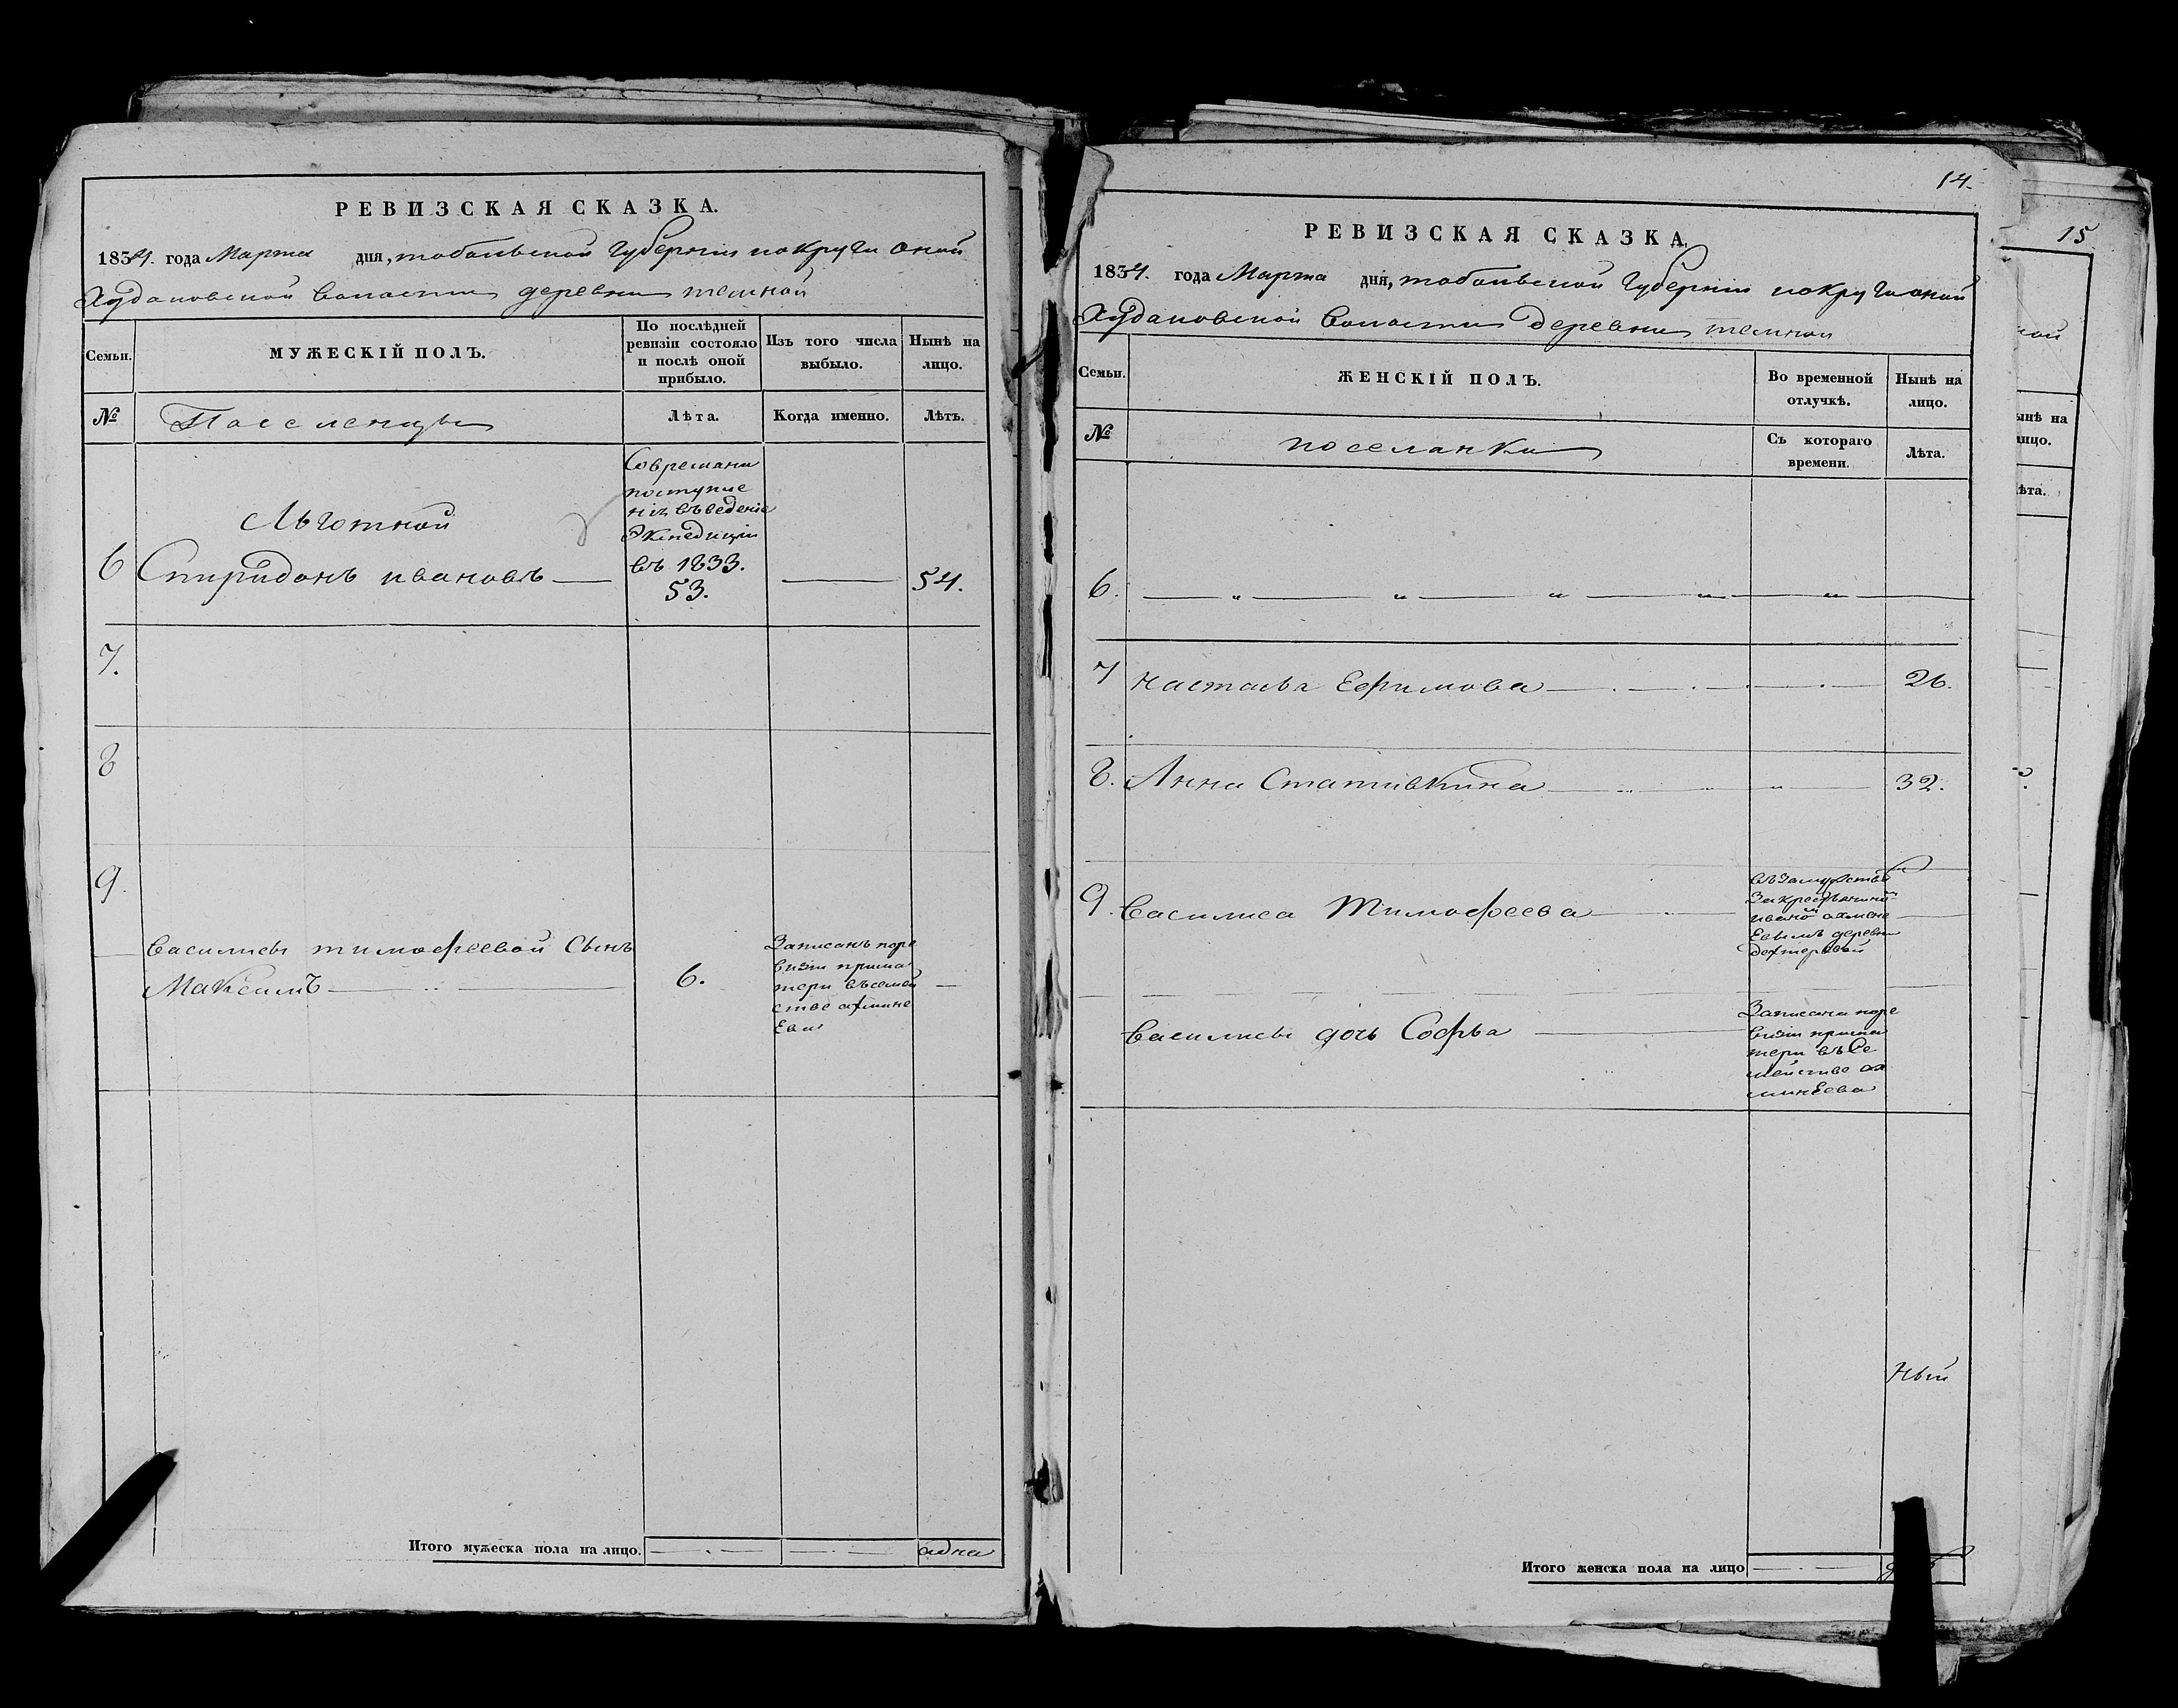 РЕВИЗСКАЯ СКАЗКА.
1834. года Марта дня, тобольской губерніи и округи оной
Худаковской волости деревни темной
Семьи.
МУЖЕСКІЙ ПОЛЪ.
По послѣдней ревизіи состояло и послѣ оной прибыло.
Изъ того числа выбыло.
Нынѣ на лицо.
№
Поселенцы
Лѣта.
Когда именно.
Лѣтъ.
Льготной
6 Спиридонъ ивановъ
Совремяни
поступле
нія въведеніе
Экспедиціи
въ 1833.
53.
54.
7.
8
9.
Василисы тимофеевой Сынъ
Максимъ
6.
Записанъ поре
визіи прима
тери въсемей
стве
Ева
Итого мужеска пола на лицо.
одна
14.
РЕВИЗСКАЯ СКАЗКА.
1834. года Марта дня, тобольской губерніи и округи оной
Худаковской волости деревни темной
Семьи.
ЖЕНСКІЙ ПОЛЪ.
Во временной отлучкѣ.
Нынѣ на лицо.
№
поселянки
Съ котораго времени.
Лѣта.
6.
7 Настасья Ефимова
26.
8. Анна Стативкина
32.
9. Василиса Тимофеева
въЗамужстве
За кресьянином
ивано
Евымъ деревни
Дехтеревой
Василисы дочь Софья
Записана поре
визіи прима
тери въ Се
мействе ах
минеева
ный
Итого женска пола на лицо
15
ной
ынѣ на
лицо.
ѣта.